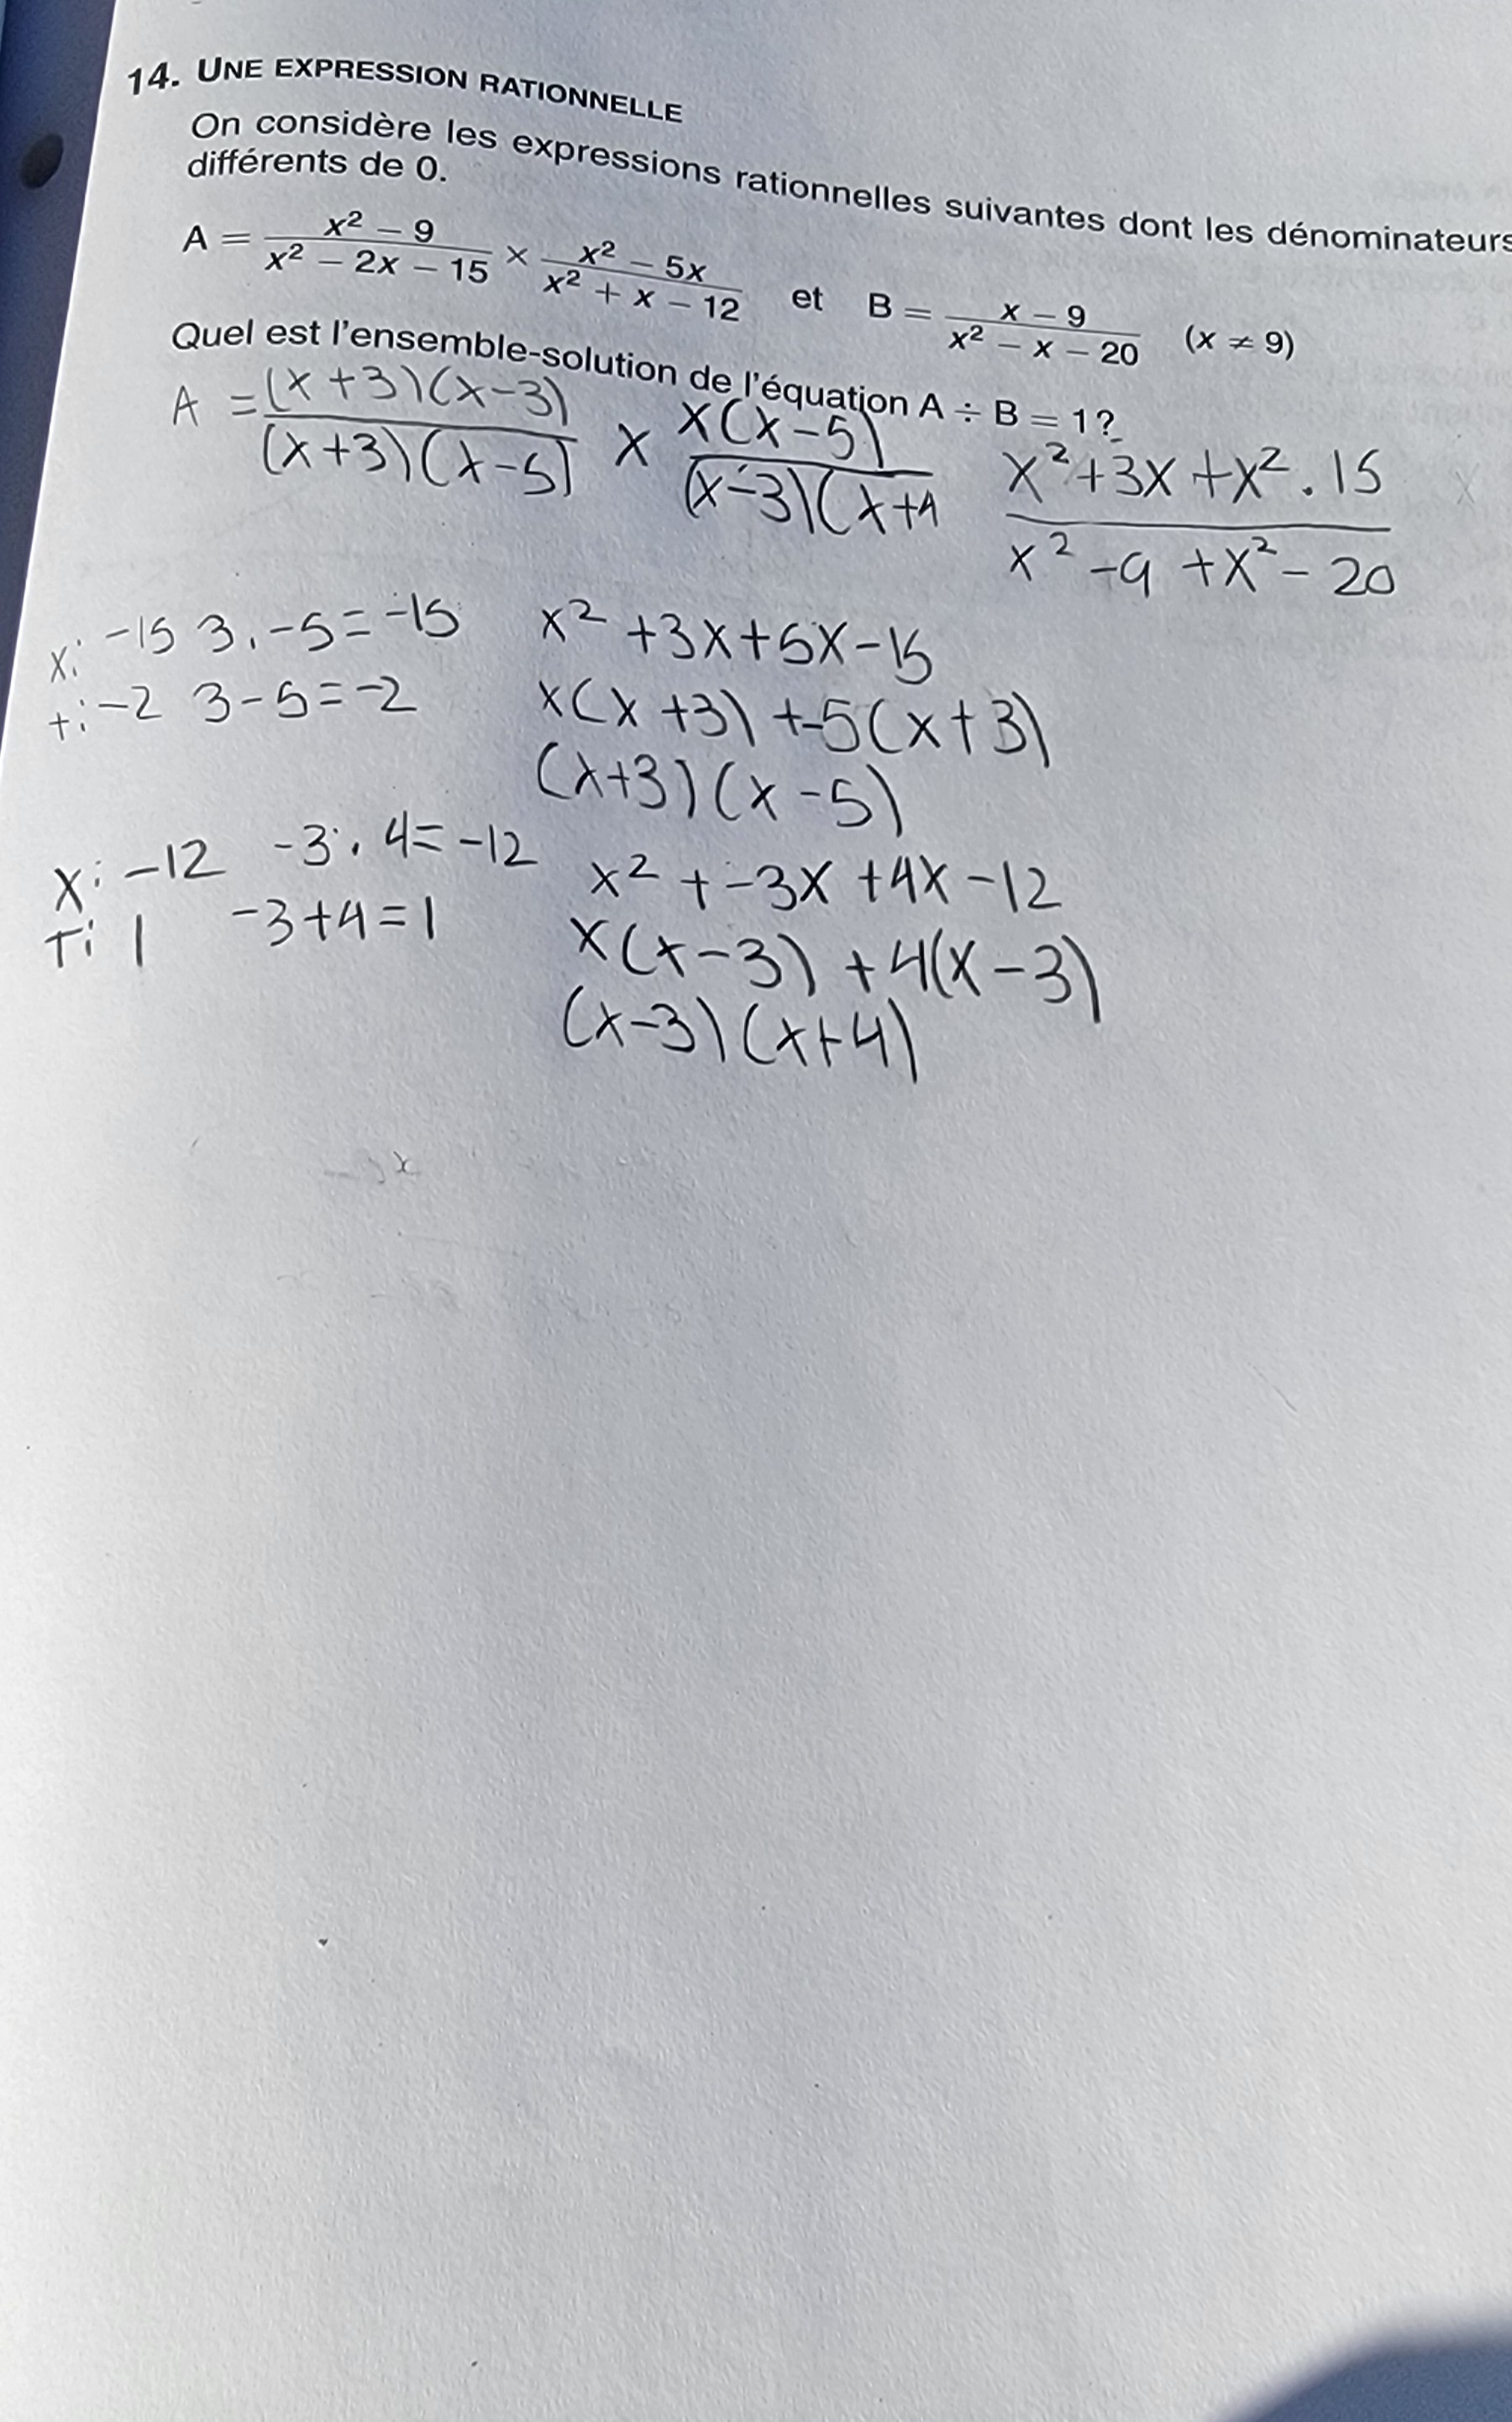 14. UNE EXPRESSION RATIONNELLE
On considère les expressions rationnelles suivantes dont les dénominateurs
différents de 0.
A = (x² − 9)/(x² − 2x − 15) × (x² − 5x)/(x² + x − 12) et B = (x − 9)/(x² − x − 20) (x ≠ 9)
Quel est l'ensemble-solution de l'équation A ÷ B = 1?
A = (x+3)(x-3)/(x+3)(x-5) × x(x-5)/(x-3)(x+4
x²+3x+x².15/x²-9+x²-20
x: -15 3.-5=-15
+: -2 3-5=-2
x²+3x+5x-15
x(x+3)+-5(x+3)
(x+3)(x-5)
x: -12 -3.4=-12
+: 1 -3+4=1
x²+-3x+4x-12
x(x-3)+4(x-3)
(x-3)(x+4)